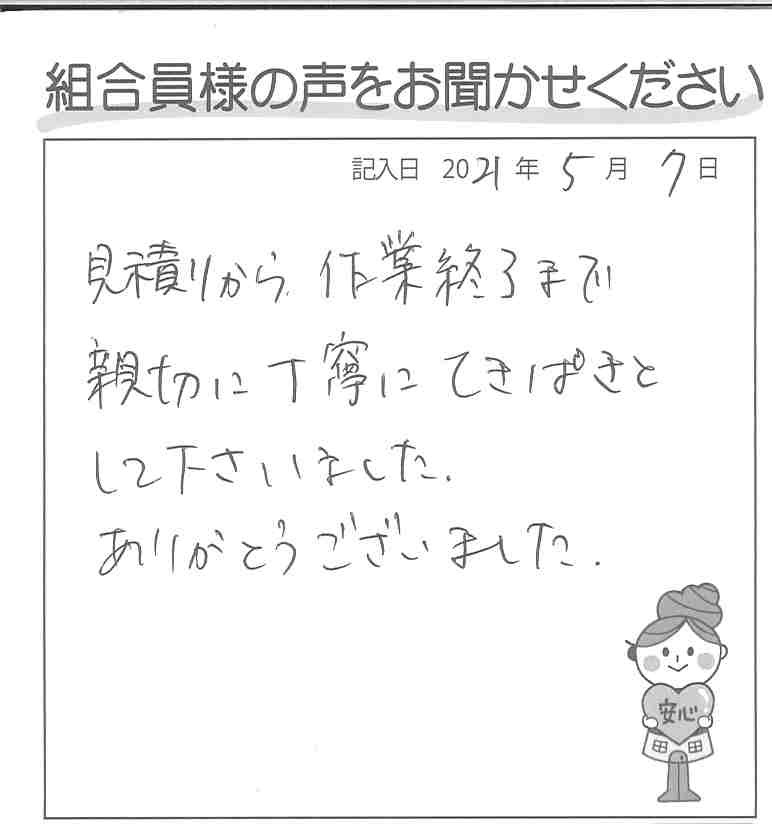 組合員様の声をお聞かせください
記入日 2021年 5月 7日
見積りから 作業終了まで
親切に丁寧に てきぱきと
して下さいました.
ありがとうございました.
安心